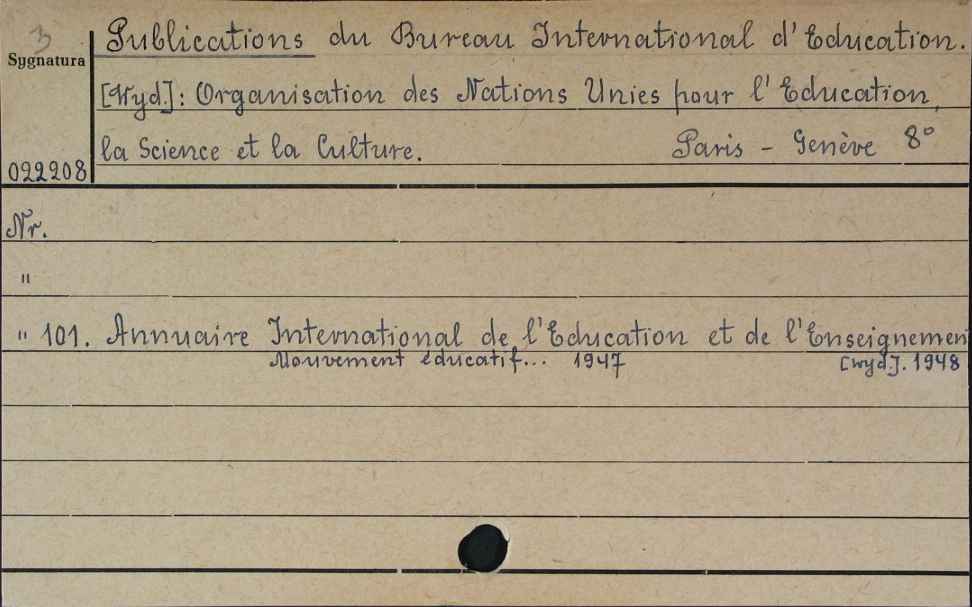 3
Sygnatura
022208
Publications du Bureau International d'Education.
[Wyd.]: Organisation des Nations Unies pour l'Education,
la Science et la Culture. Paris - Genève 8°
Nr.
"
" 101. Annuaire International de l'Education et de l'Enseignemen
Mouvement éducatif... 1947 [wyd.]. 1948